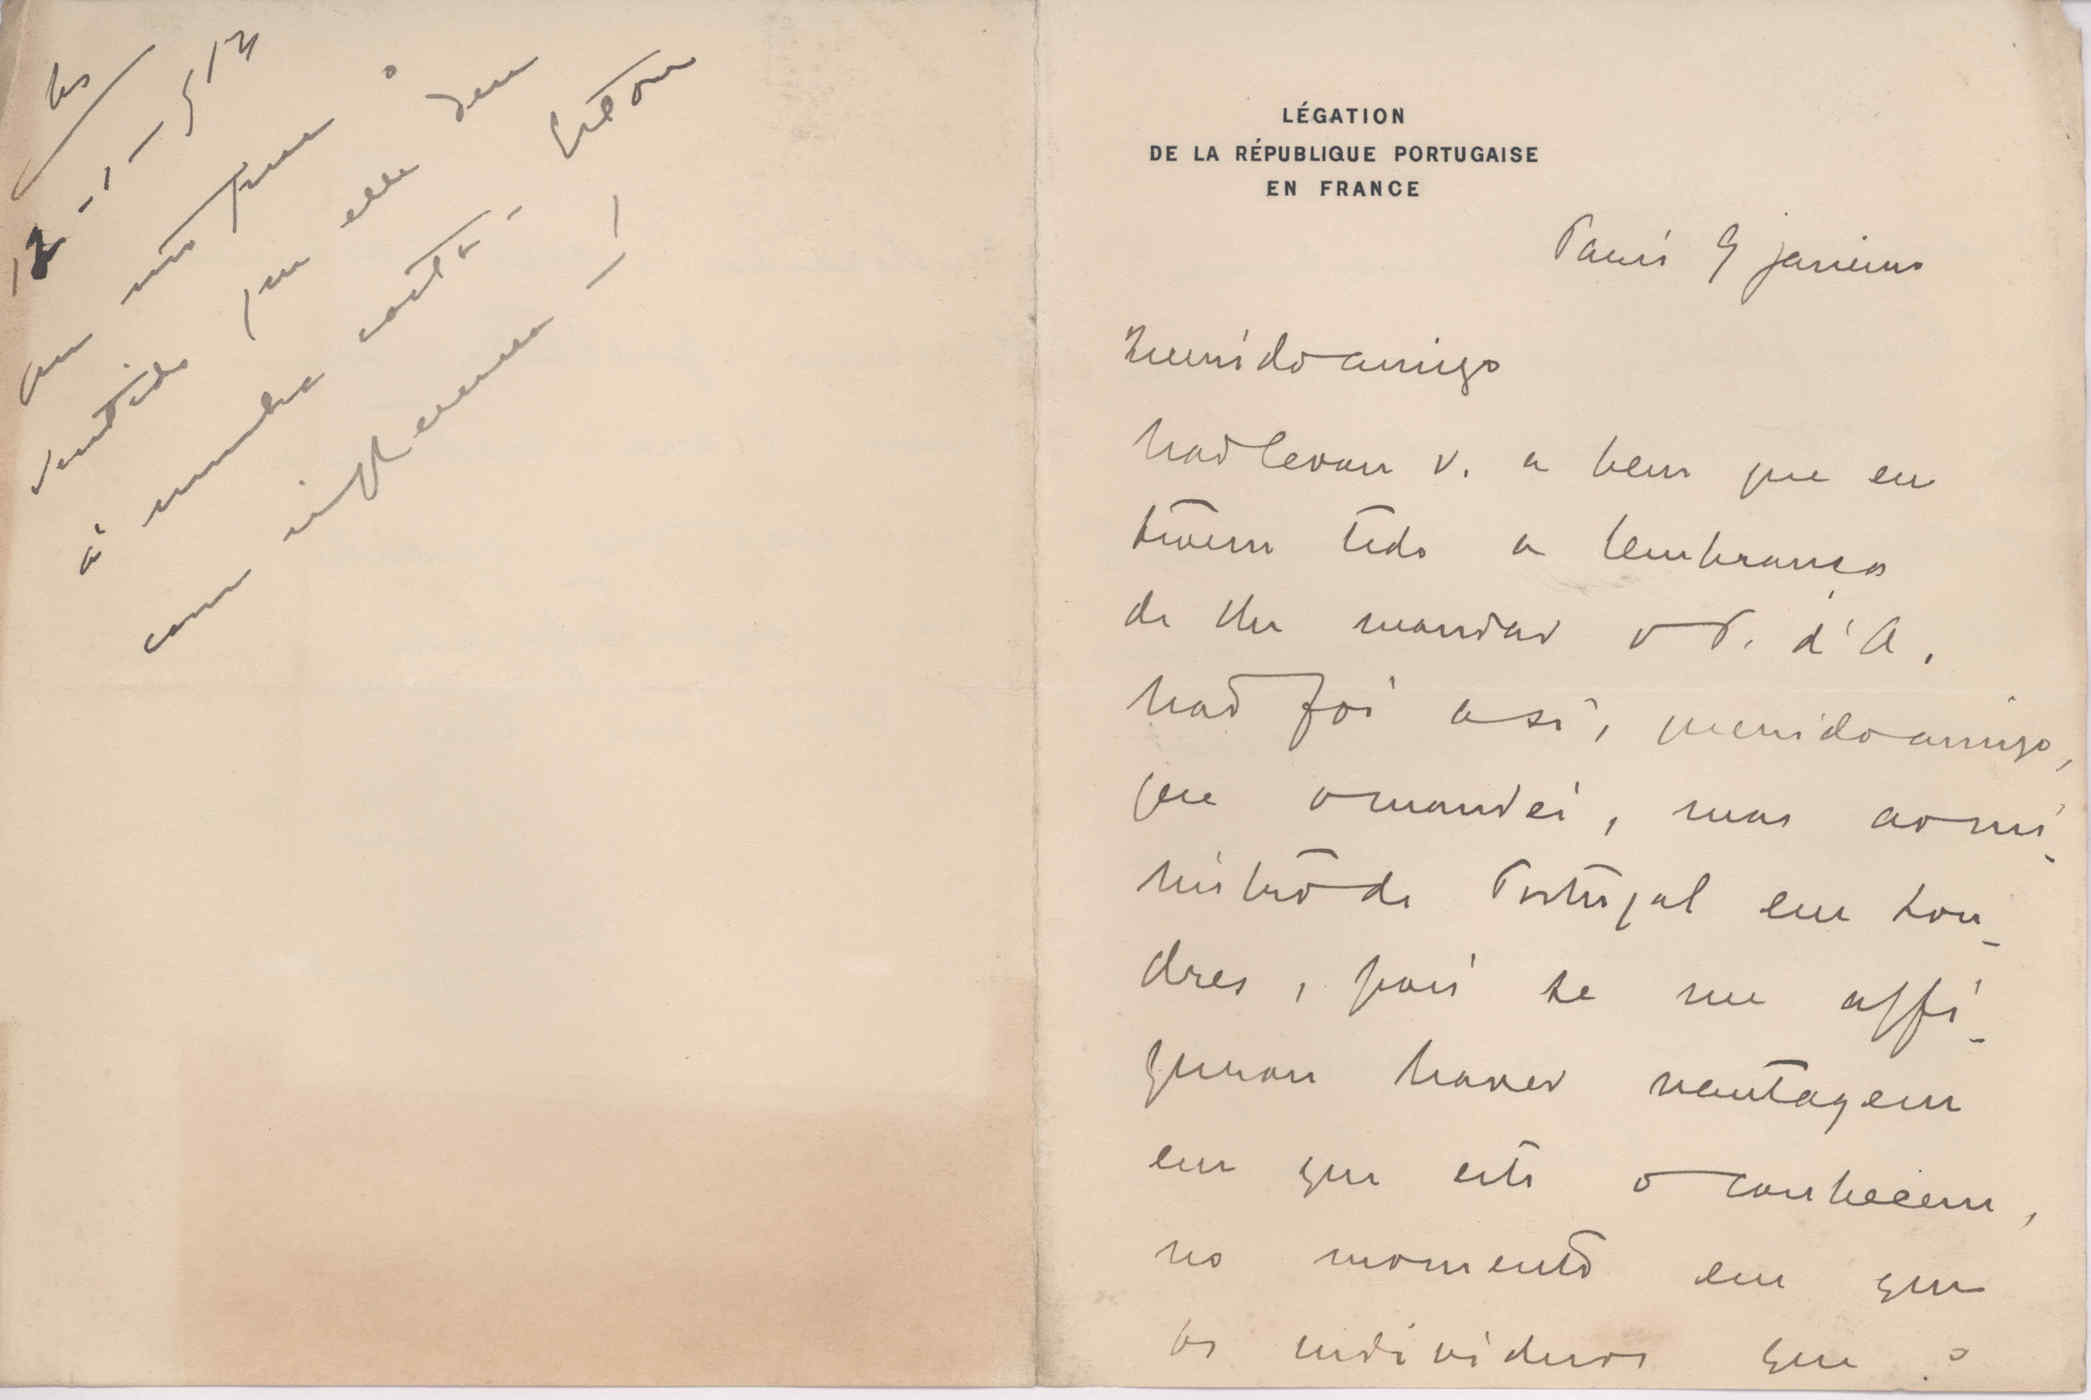 12-1-913
no sentido que elle deu
á minha carta-
com
LÉGATION
DE LA RÉPUBLIQUE PORTUGAISE
EN FRANCE
Paris 9 janeiro
Querido amigo
Não levou v. a bem que eu
tivesse tido a lembrança
de lhe mandar o P. d'A.
Não foi a si, querido amigo,
que o mandei, mas ao mi-
nistro de Portugal em Lon-
dres, pois se me affi-
gurou haver vantagem
em que este o conhecesse,
no momento em que
os individuos que o